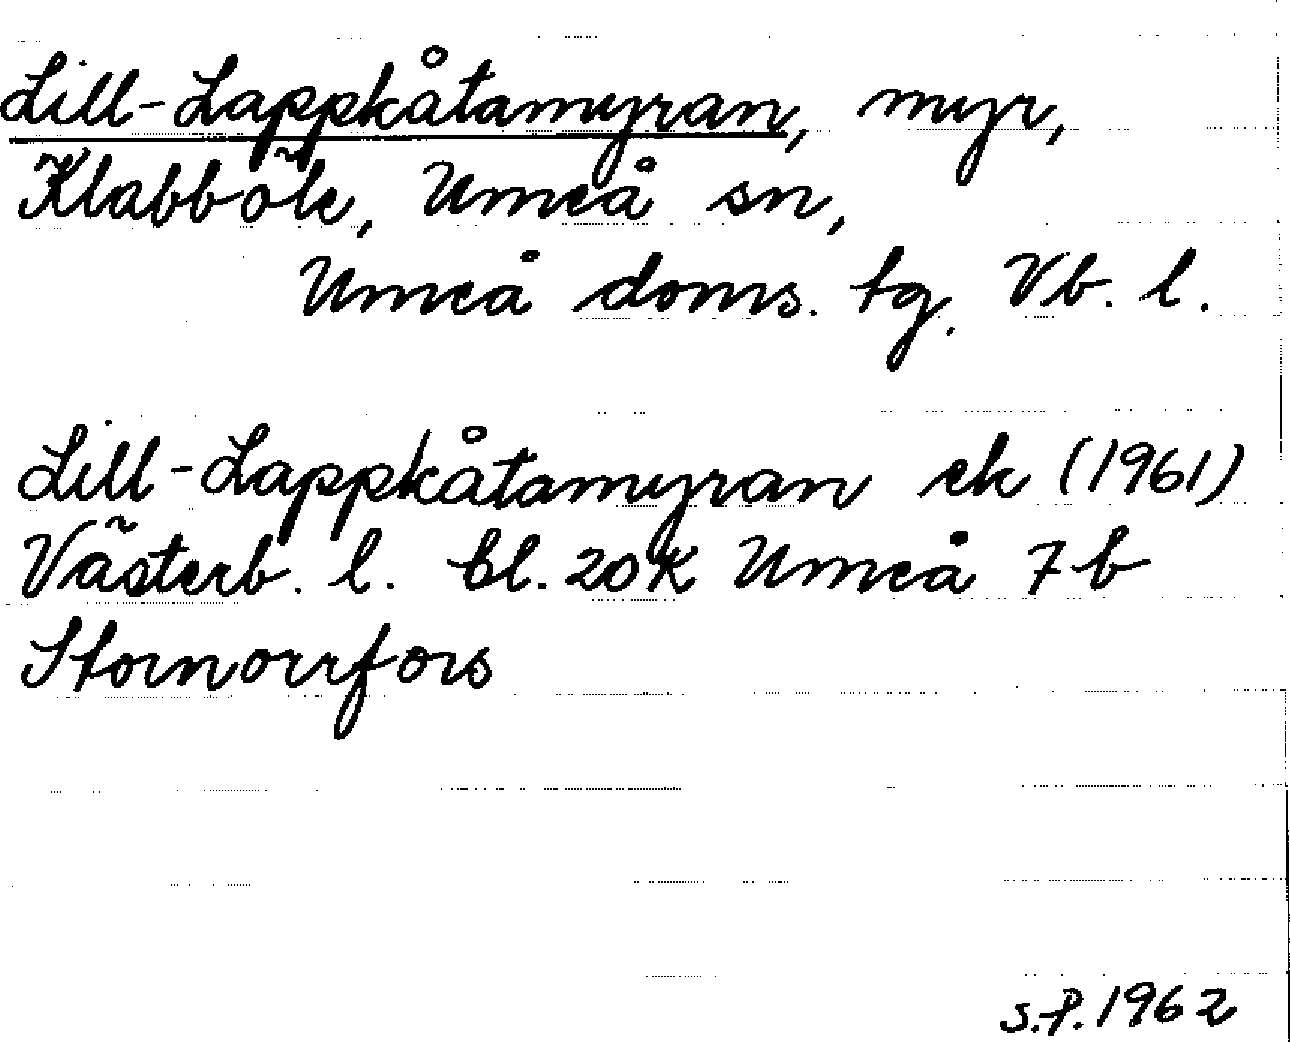 Lill-Lappkåtamyran, myr,
Klabböle, Umeå sn,
Umeå doms. tg. Vb. l.
Lill-Lappkåtamyran ek (1961)
Västerb. l. bl. 20K Umeå 7b
Stornorrfors
S.P. 1962